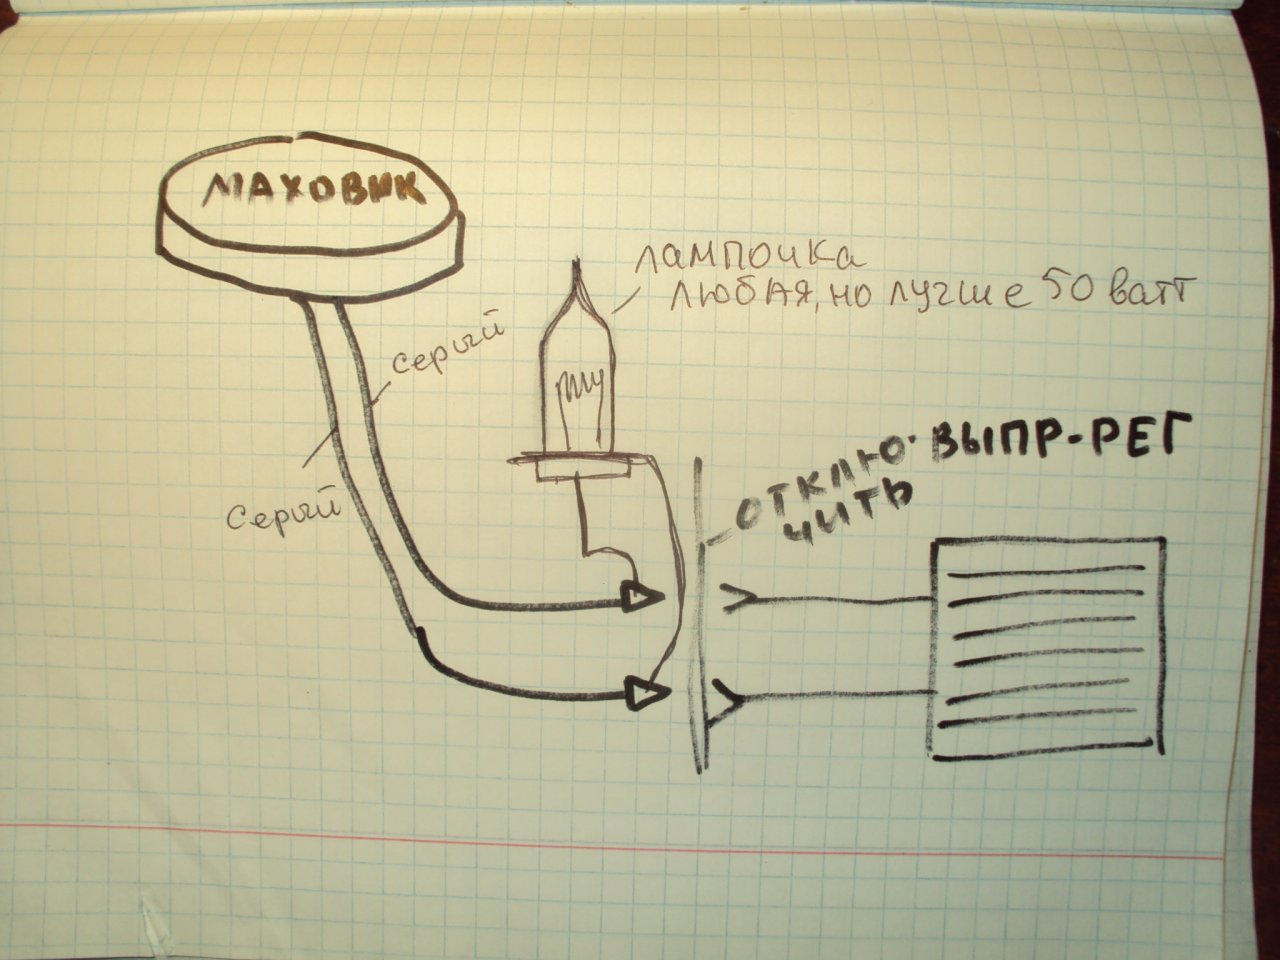 МАХОВИК
лампочка
любая, но лучше 50 ватт
серый
серый
ОТКЛЮ-
ЧИТЬ
ВЫПР-РЕГ